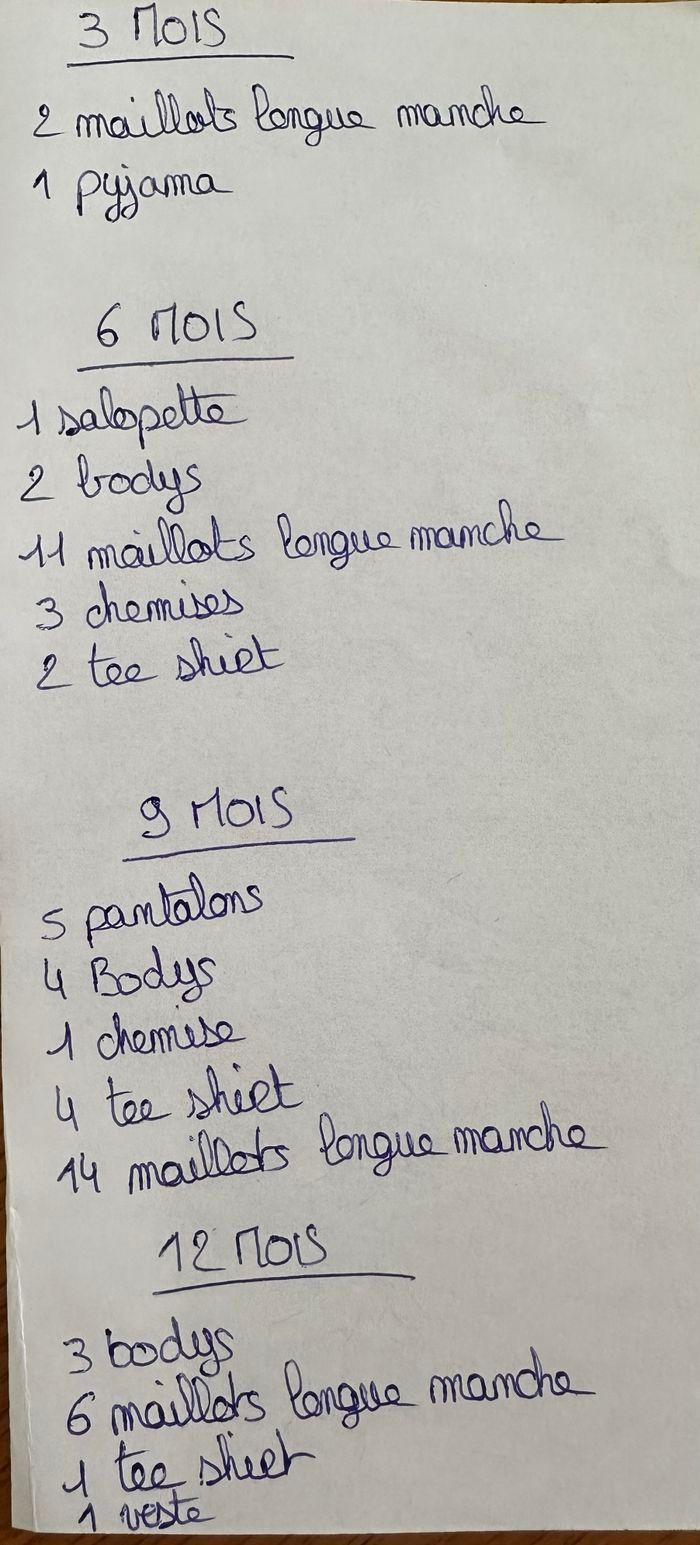 3 MOIS
2 maillots longue manche
1 pyjama
6 MOIS
1 salopette
2 bodys
11 maillots longue manche
3 chemises
2 tee shirt
9 MOIS
5 pantalons
4 Bodys
1 chemise
4 tee shirt
14 maillots longue manche
12 MOIS
3 bodys
6 maillots longue manche
1 tee shirt
1 veste